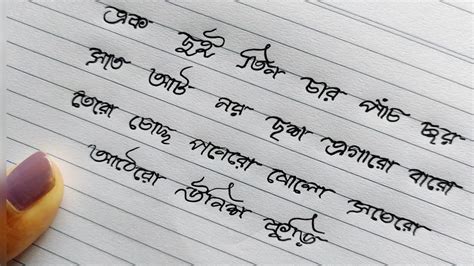 এক দুই তিন চার পাঁচ ছয়
সাত আট নয় দশ এগারো বারো
তেরো চোদ্দ পনেরো ষোলো সতেরো
আঠেরো উনিশ কুড়ি